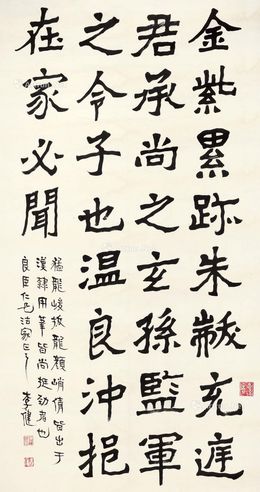 金紫累跡朱黻充庭
君承尚之玄孫監軍
之令子也温良沖挹
在家必聞
猛龍峻拔龍顏峭倩皆出于
漢隸用筆皆尚挺劲者也
良臣仁兄法家正之 李健